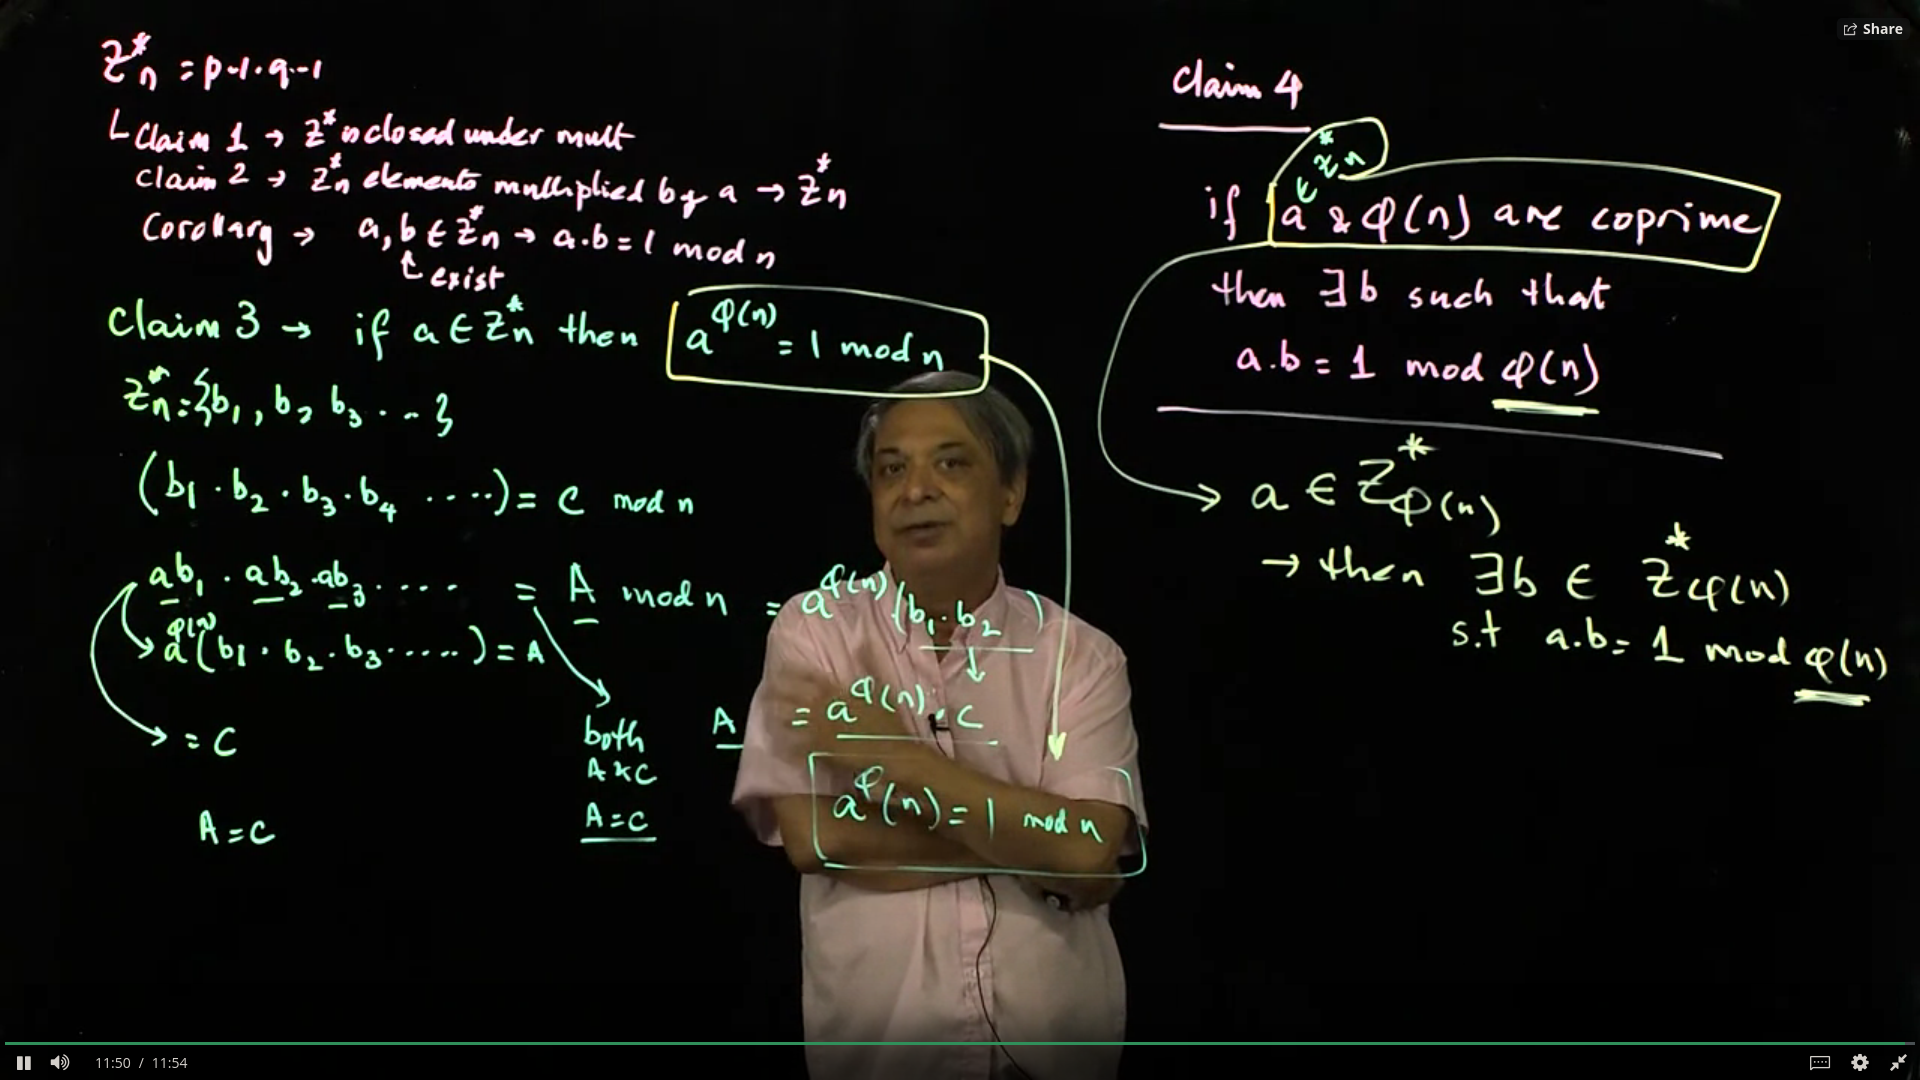 Z*n = p-1.q-1
Claim 1 → Z* is closed under mult
Claim 2 → Z*n elements multiplied by a → Z*n
Corollary → a, b ∈ Z*n → a.b = 1 mod n
exist
Claim 3 → if a ∈ Z*n then a^φ(n) = 1 mod n
Z*n = {b1, b2 b3 . . . }
(b1 . b2 . b3 . b4 ....) = C mod n
ab1 . ab2 . ab3 .... = A mod n = a^φ(n) (b1 . b2 )
a^φ(n) (b1 . b2 . b3 .....) = A
= C
both
A & C
A = C
A = a^φ(n) . C
a^φ(n) = 1 mod n
A = C
Claim 4
∈ Z*n
if a & φ(n) are coprime
then ∃b such that
a.b = 1 mod φ(n)
a ∈ Z*φ(n)
→ then ∃b ∈ Z*φ(n)
s.t a.b = 1 mod φ(n)
Share
11:50 / 11:54